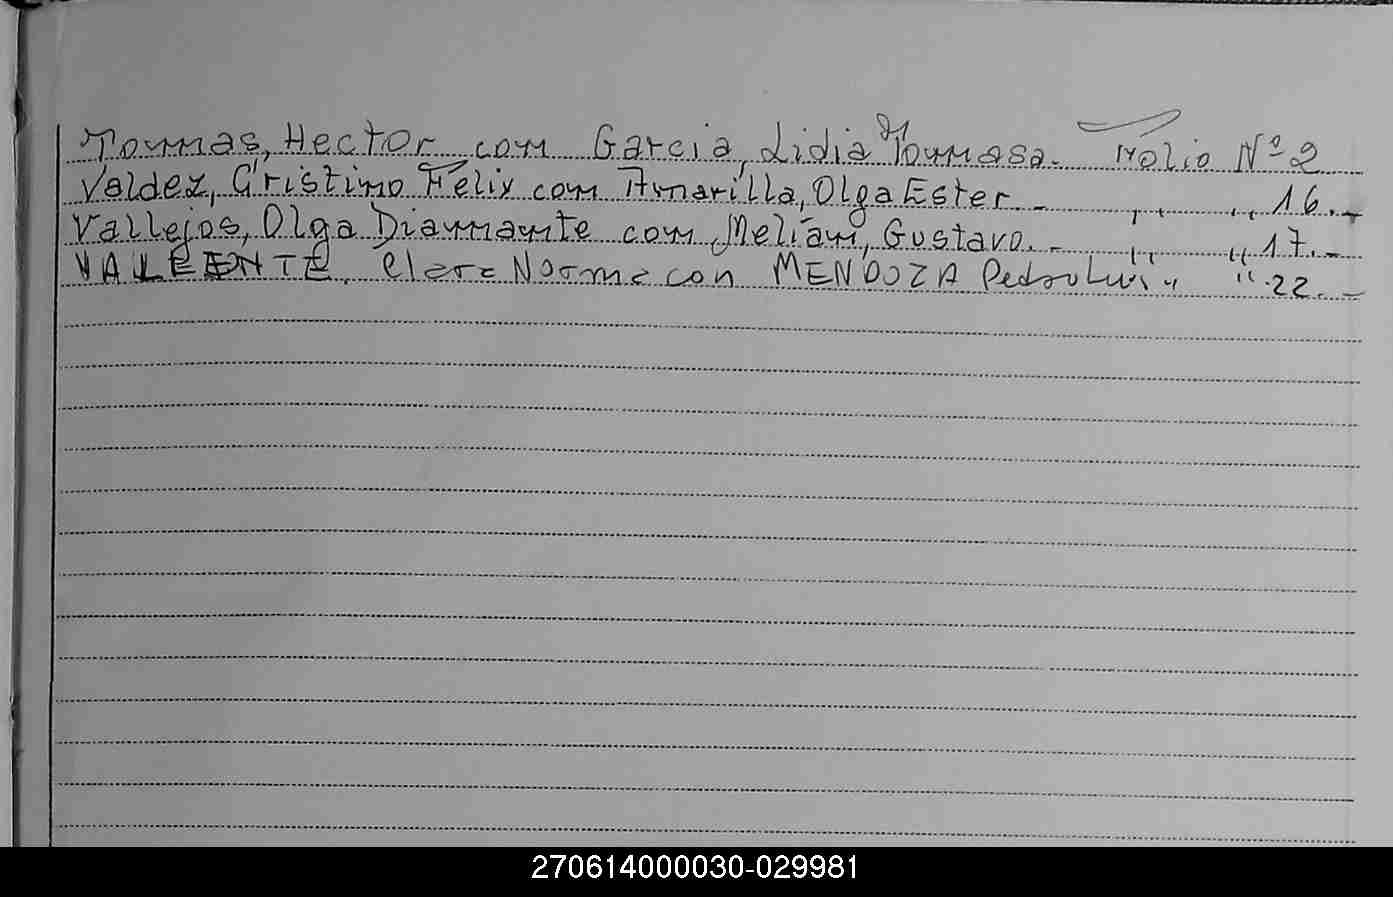 Tomas, Hector con Garcia, Lidia Tomasa. Folio Nº 2
Valdez, Cristino Felix con Amarilla, Olga Ester. - " " 16.-
Vallejos, Olga Diamante con Melian, Gustavo. - " " 17.-
VALIENTE, Clara Norma con MENDOZA Pedro Luis " " 22.-
270614000030-029981